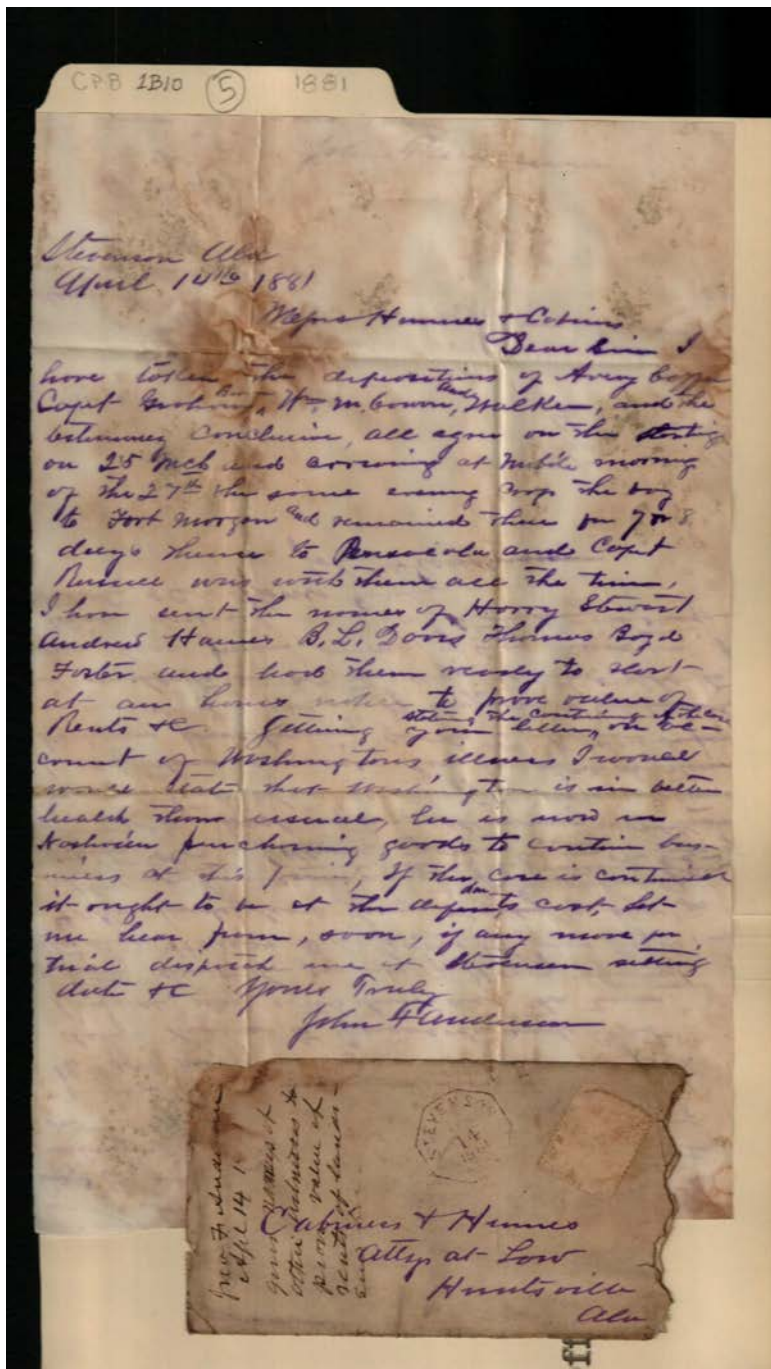 CPB 2B10 5 1881
Stevenson Ala
April 14th 1881
Messrs Humes & Cabiniss
Dear Sirs I
have taken the depositions of Avery
Capt Wm. M. Cowan, and Walker, and the
testimony conclusive, all agree on the starting
on 25 Mch and arriving at Mobile morning
of the 27th the same evening the bay
to Fort Morgan and remained there for 7 or 8
days thence to Pensacola and Capt
Russell was with them all the time,
I have sent the names of Harry Stewart
Andrew Hames B. L. Davis Thomas Boyd
Foster and had them ready to start
at an hours notice to prove value of
Rents &c. Getting your letter, stating the continuance on ac-
count of Washingtons illness I would
state that Washington is in better
health than usual, he is now in
Nashville purchasing goods to continue bus-
iness at this point, If the case is continued
it ought to be at the defendants cost, Let
me hear from, soon, if any move for
trial dispatch me at Stevenson setting
date &c Yours Truly
John F Anderson
STEVENSON
14
Jno F. Anderson
Apl 14
gives names of
other witnesses to
prove value of
rents of lands
Cabiniss & Humes
Attys at Law
Huntsville
Ala
ff